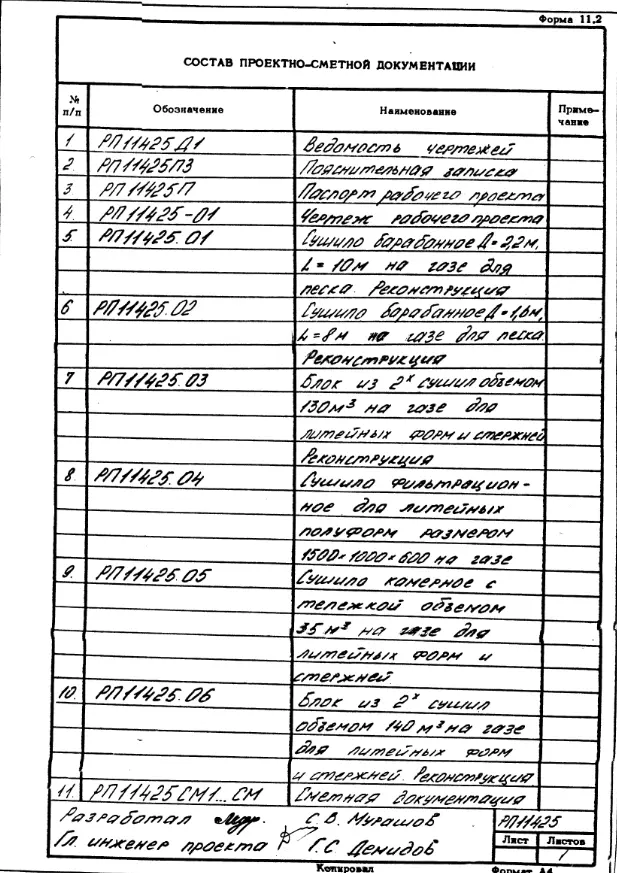 Форма 11,2
СОСТАВ ПРОЕКТНО-СМЕТНОЙ ДОКУМЕНТАЦИИ
№ п/п Обозначение Наименование Приме-
чание
1 РП11425Д1 Ведомость чертежей
2. РП11425ПЗ Пояснительная записка
3 РП11425П Паспорт рабочего проекта
4. РП11425-01 Чертеж рабочего проекта
5. РП11425.01 Сушило барабанное Д=2,2м,
L=10м на газе для
песка. Реконструкция
6 РП11425.02 Сушило барабанное Д=1,6м,
L=8м на газе для песка.
Реконструкция
7 РП11425.03 Блок из 2х сушил объемом
130м³ на газе для
литейных форм и стержней
Реконструкция
8. РП11425.04 Сушило фильтрацион-
ное для литейных
полуформ размером
1500×1000×600 на газе
9. РП11425.05 Сушило камерное с
тележкой объемом
35 м³ на газе для
литейных форм и
стержней
10. РП11425.06 Блок из 2х сушил
объемом 140 м³ на газе
для литейных форм
и стержней. Реконструкция
11. РП11425СМ1...СМ Сметная документация
Разработал С.В. Мурашов
Гл. инженер проекта Г.С Демидов
РП11425
Лист Листов
1
Копировал Формат А4